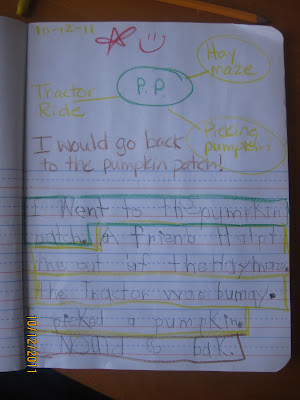 10-12-11
Hay
maze
P.P.
Tractor
Ride
Picking
pumpkins
I would go back
to the pumpkin patch!
I Went to the pumpkin
patch. A friend Halpt
me out of the Haymaze.
the Tractor was bumqy.
I picked a pumpkin.
I would Go bak.
10/12/2011